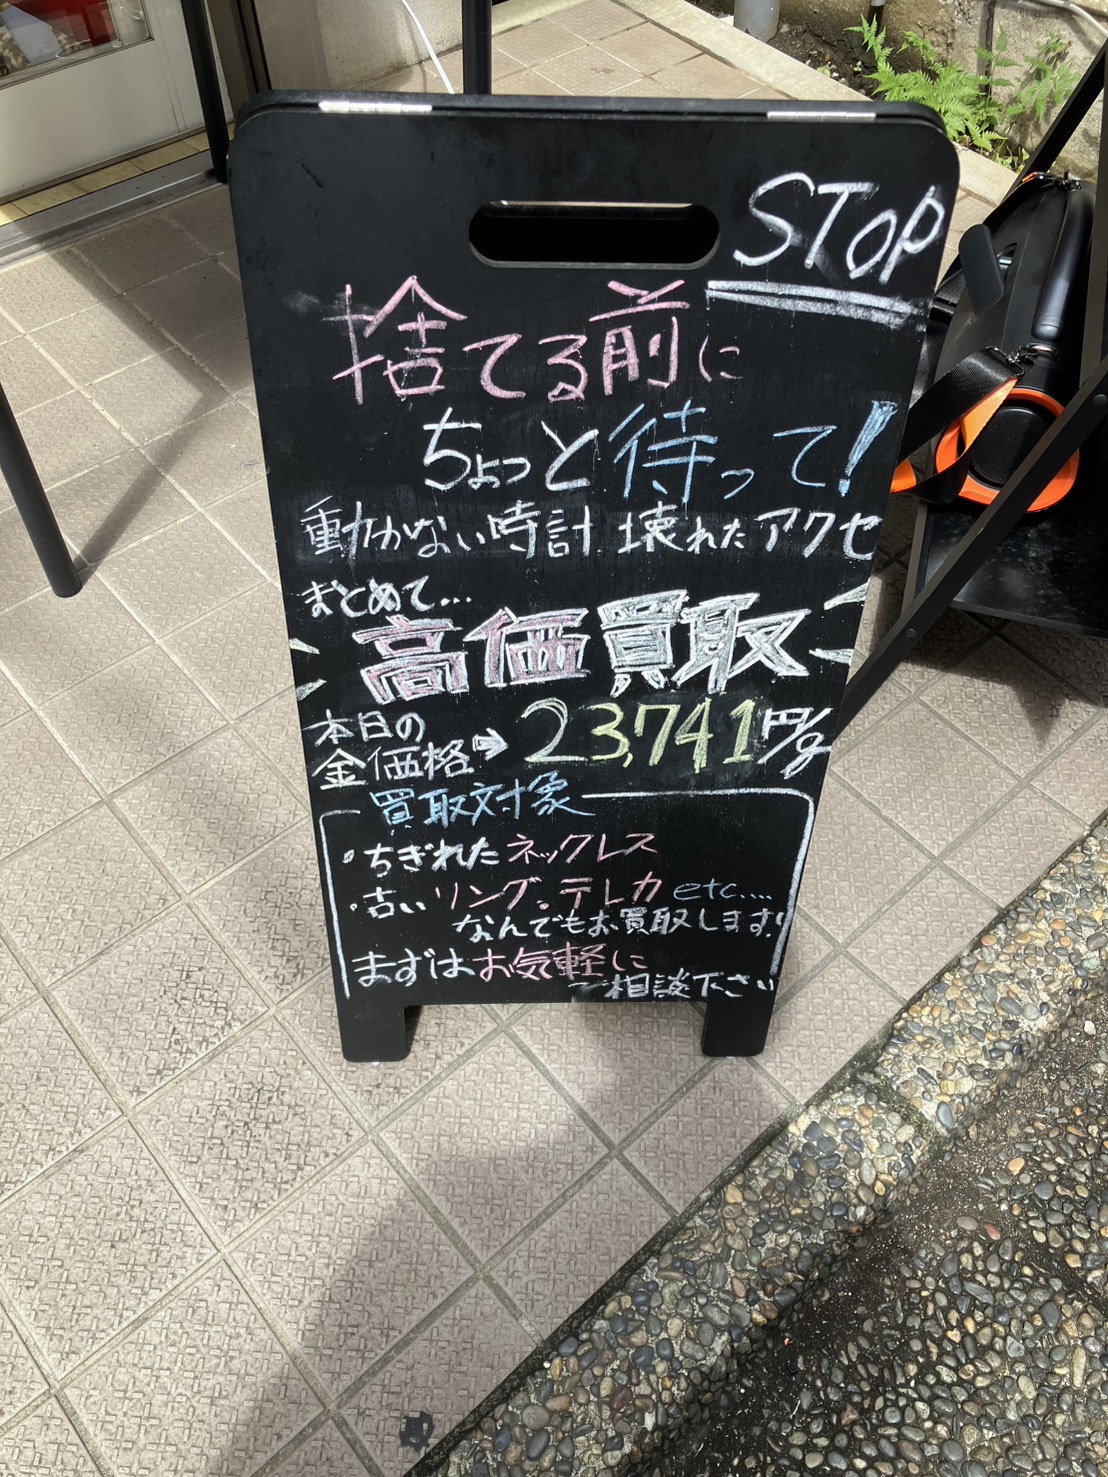 STOP
捨てる前に
ちょっと待って!
動かない時計 壊れたアクセ
まとめて...
高価買取
本日の
金価格→23,741円/g
買取対象
・ちぎれたネックレス
・古いリング。テレカetc....
なんでもお買取します!
まずはお気軽に
ご相談下さい